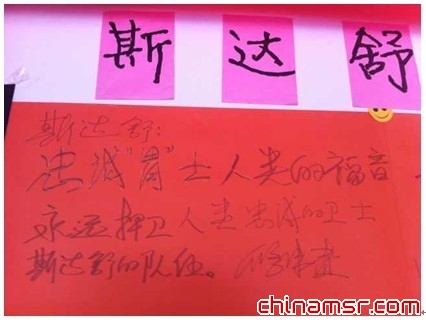 斯达舒
斯达舒:
忠诚"胃"士人类的福音
永远捍卫人类忠诚的卫士
斯达舒的队伍。
chinamsr.com